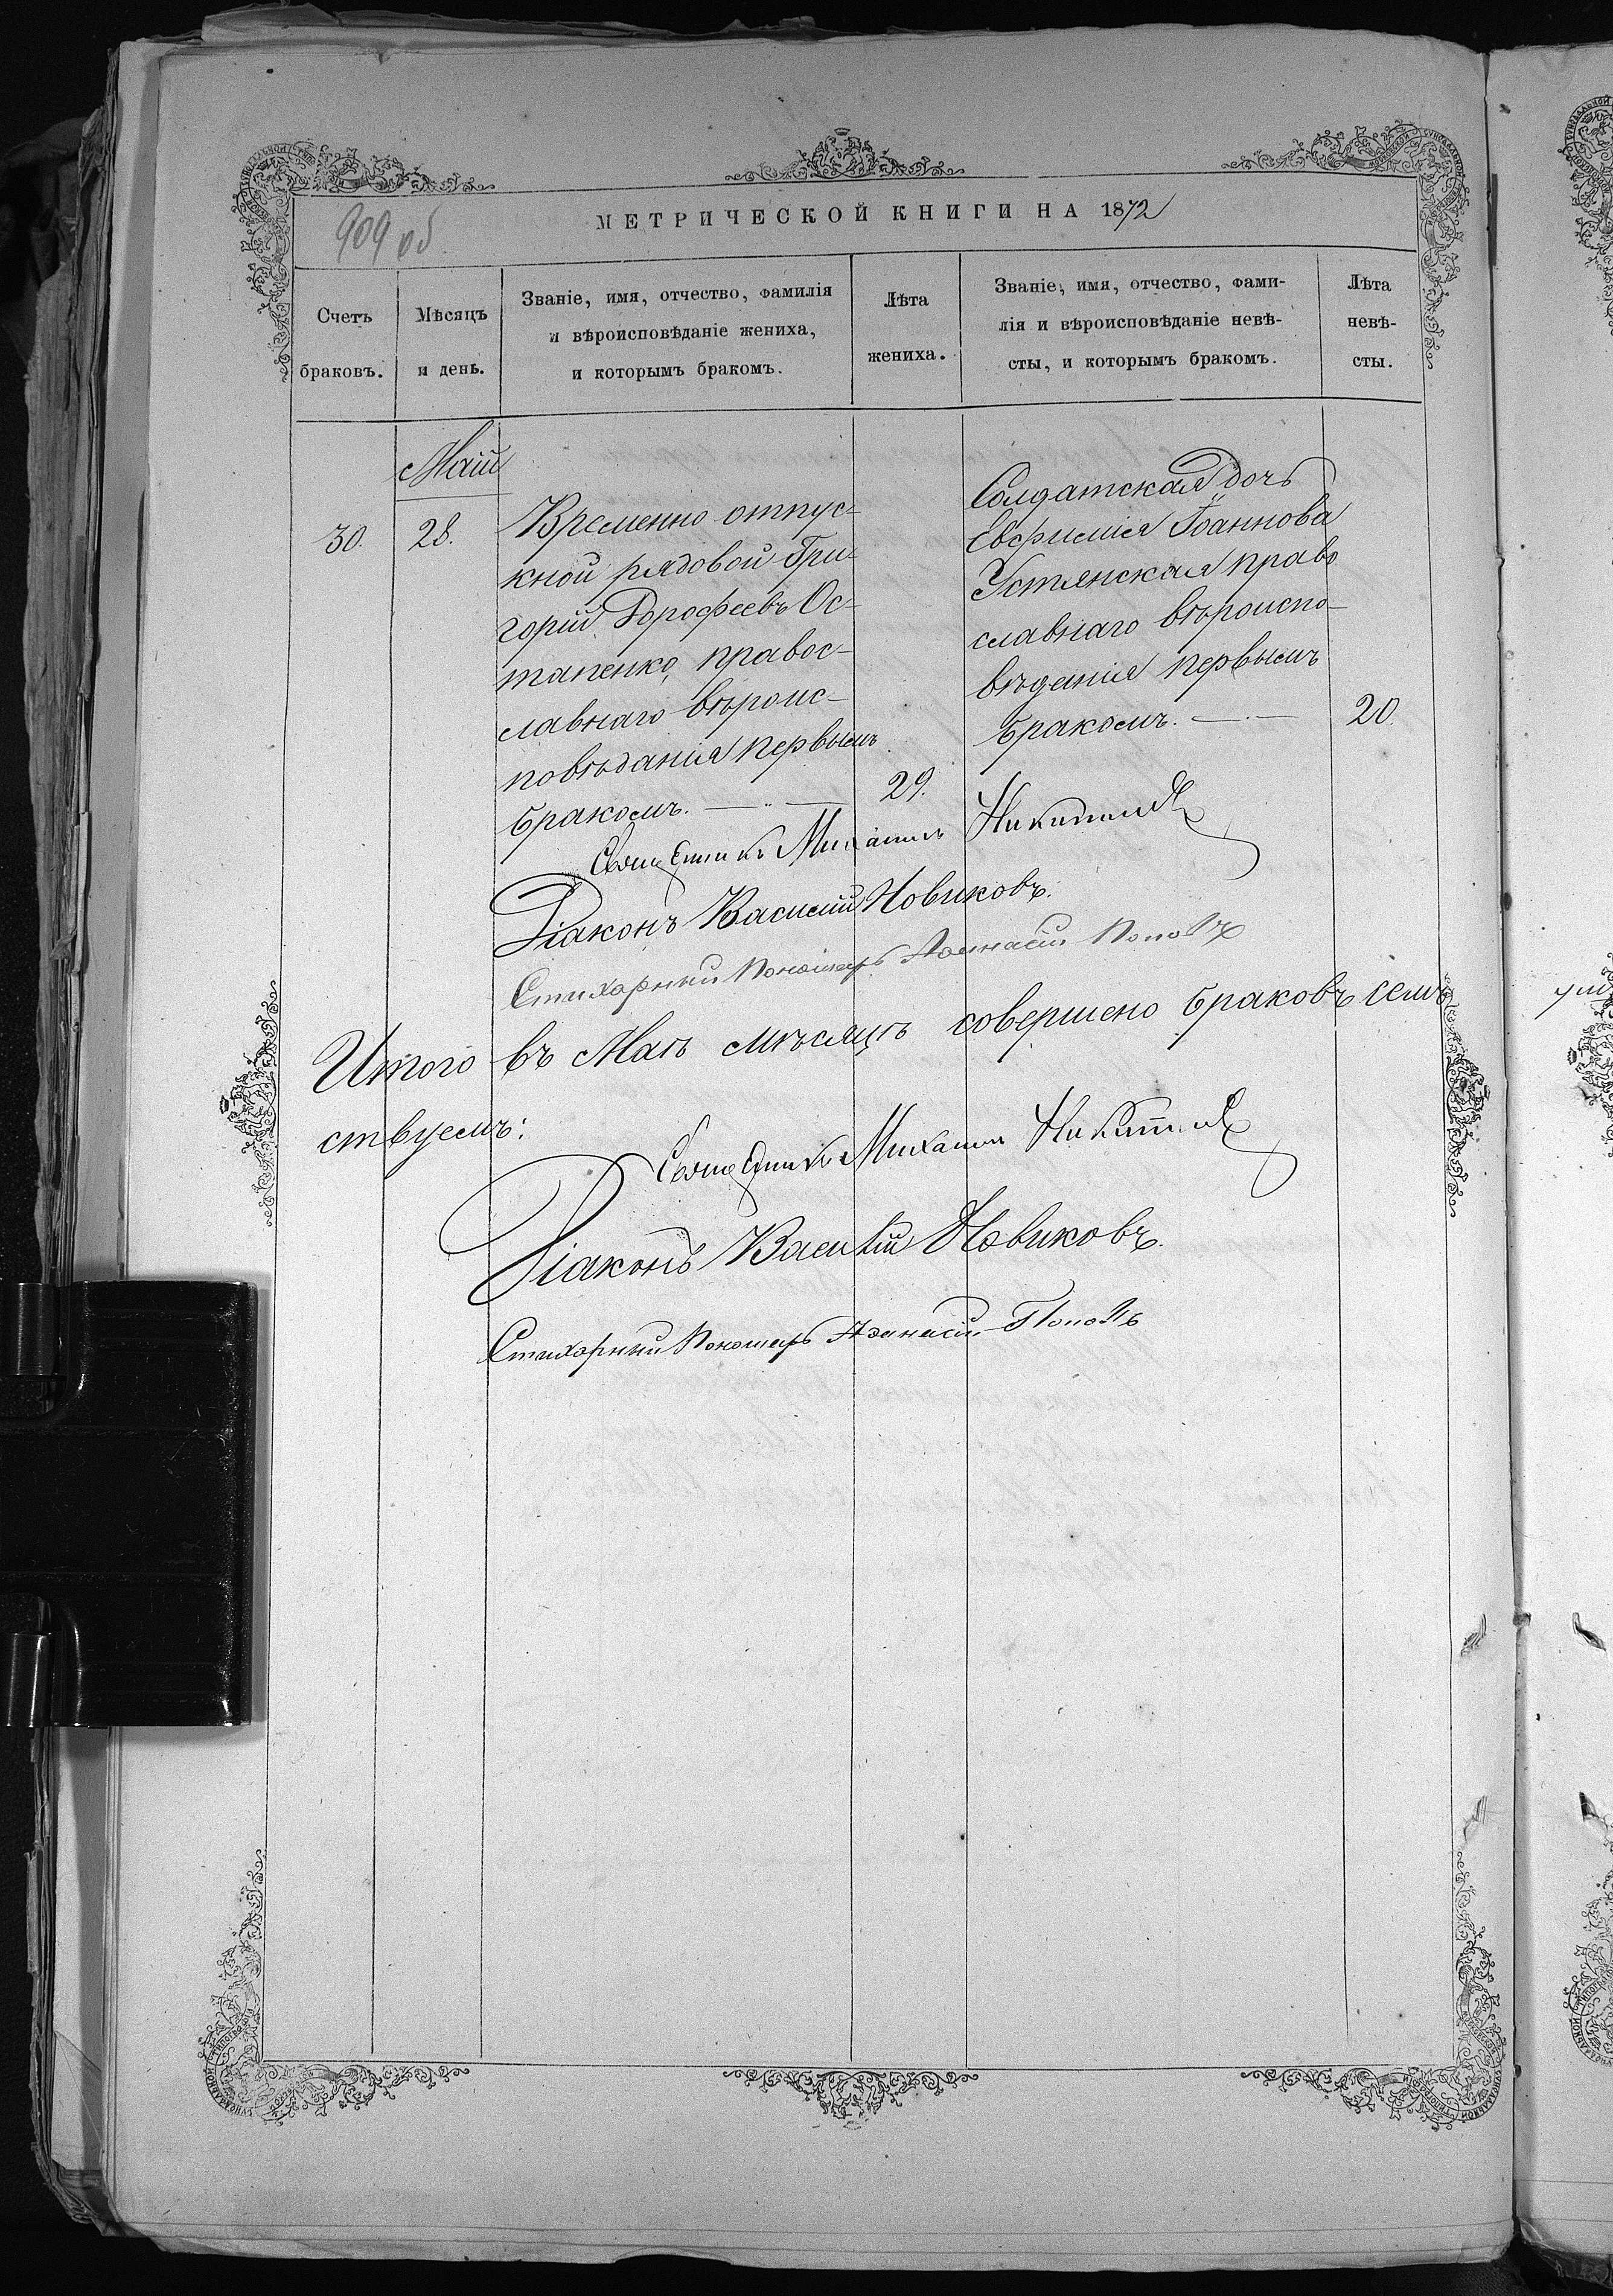 909 об
МЕТРИЧЕСКОЙ КНИГИ НА 1872
Счетъ браковъ.
Мѣсяцъ и день.
Званіе, имя, отчество, фамилія
и вѣроисповѣданіе жениха,
и которымъ бракомъ.
Лѣта жениха.
Званіе, имя, отчество, фами-
лія и вѣроисповѣданіе невѣ-
сты, и которымъ бракомъ.
Лѣта невѣ-
сты.
Май
30.
28.
Временно отпус-
кной рядовой Гри-
горій Дорофеевъ Ос-
тапенко, правос-
лавнаго вѣроис-
повѣданія первымъ
бракомъ.
29.
Солдатская дочь
Евфимія Іоаннова
Устянская право
славнаго вѣроиспо-
вѣданія первымъ
бракомъ.
20.
Священникъ Михаилъ
Діаконъ Василій Новиковъ.
Стихарный Пономарь Афанасій Поповъ
Итого въ Маѣ мѣсяцѣ совершено браковъ семь
ствуемъ:
Священникъ Михаилъ
Діаконъ Василій Новиковъ.
Стихарный Пономарь Афанасій Поповъ